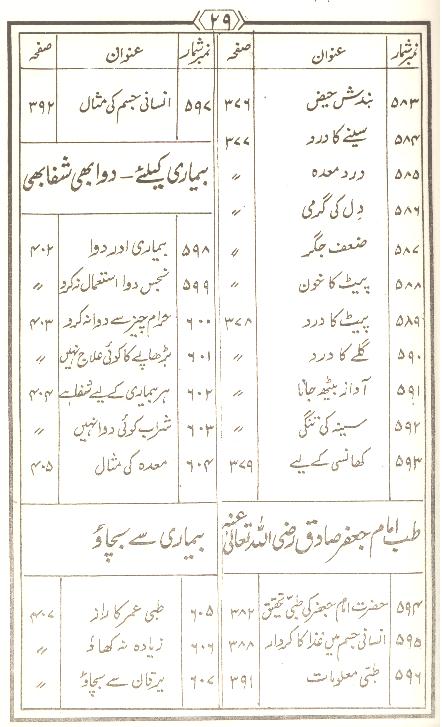 ۲۹
نمبر شمار عنوان صفحہ
۵۸۳ بندش حیض ۳۷۶
۵۸۴ سینے کا درد ۳۷۷
۵۸۵ درد معدہ 〃
۵۸۶ دِل کی گرمی 〃
۵۸۷ ضعف جگر 〃
۵۸۸ پیٹ کا خون 〃
۵۸۹ پیٹ کا درد ۳۷۸
۵۹۰ گلے کا درد 〃
۵۹۱ آواز بیٹھ جانا 〃
۵۹۲ سینہ کی تنگی 〃
۵۹۳ کھانسی کے لیے ۳۷۹
طب امام جعفر صادق رضی اللہ تعالیٰ عنہ
۵۹۴ حضرت امام جعفر کی طبّی تحقیق ۳۸۲
۵۹۵ انسانی جسم میں غذا کا کردار ۳۸۸
۵۹۶ طبّی معلومات ۳۹۱
نمبر شمار عنوان صفحہ
۵۹۷ انسانی جسم کی مثال ۳۹۲
بیماری کیلئے - دوا بھی شفا بھی
۵۹۸ بیماری اور دوا ۴۰۲
۵۹۹ نجس دوا استعمال نہ کرو 〃
۶۰۰ حرام چیز سے دوا نہ کرو ۴۰۳
۶۰۱ بڑھاپے کا کوئی علاج نہیں 〃
۶۰۲ ہر بیماری کے لیے شفا ہے ۴۰۴
۶۰۳ شراب کوئی دوا نہیں 〃
۶۰۴ معدہ کی مثال ۴۰۵
بیماری سے بچاؤ
۶۰۵ طبی عمر کا راز ۴۰۷
۶۰۶ زیادہ نہ کھاؤ 〃
۶۰۷ یرقان سے بچاؤ 〃